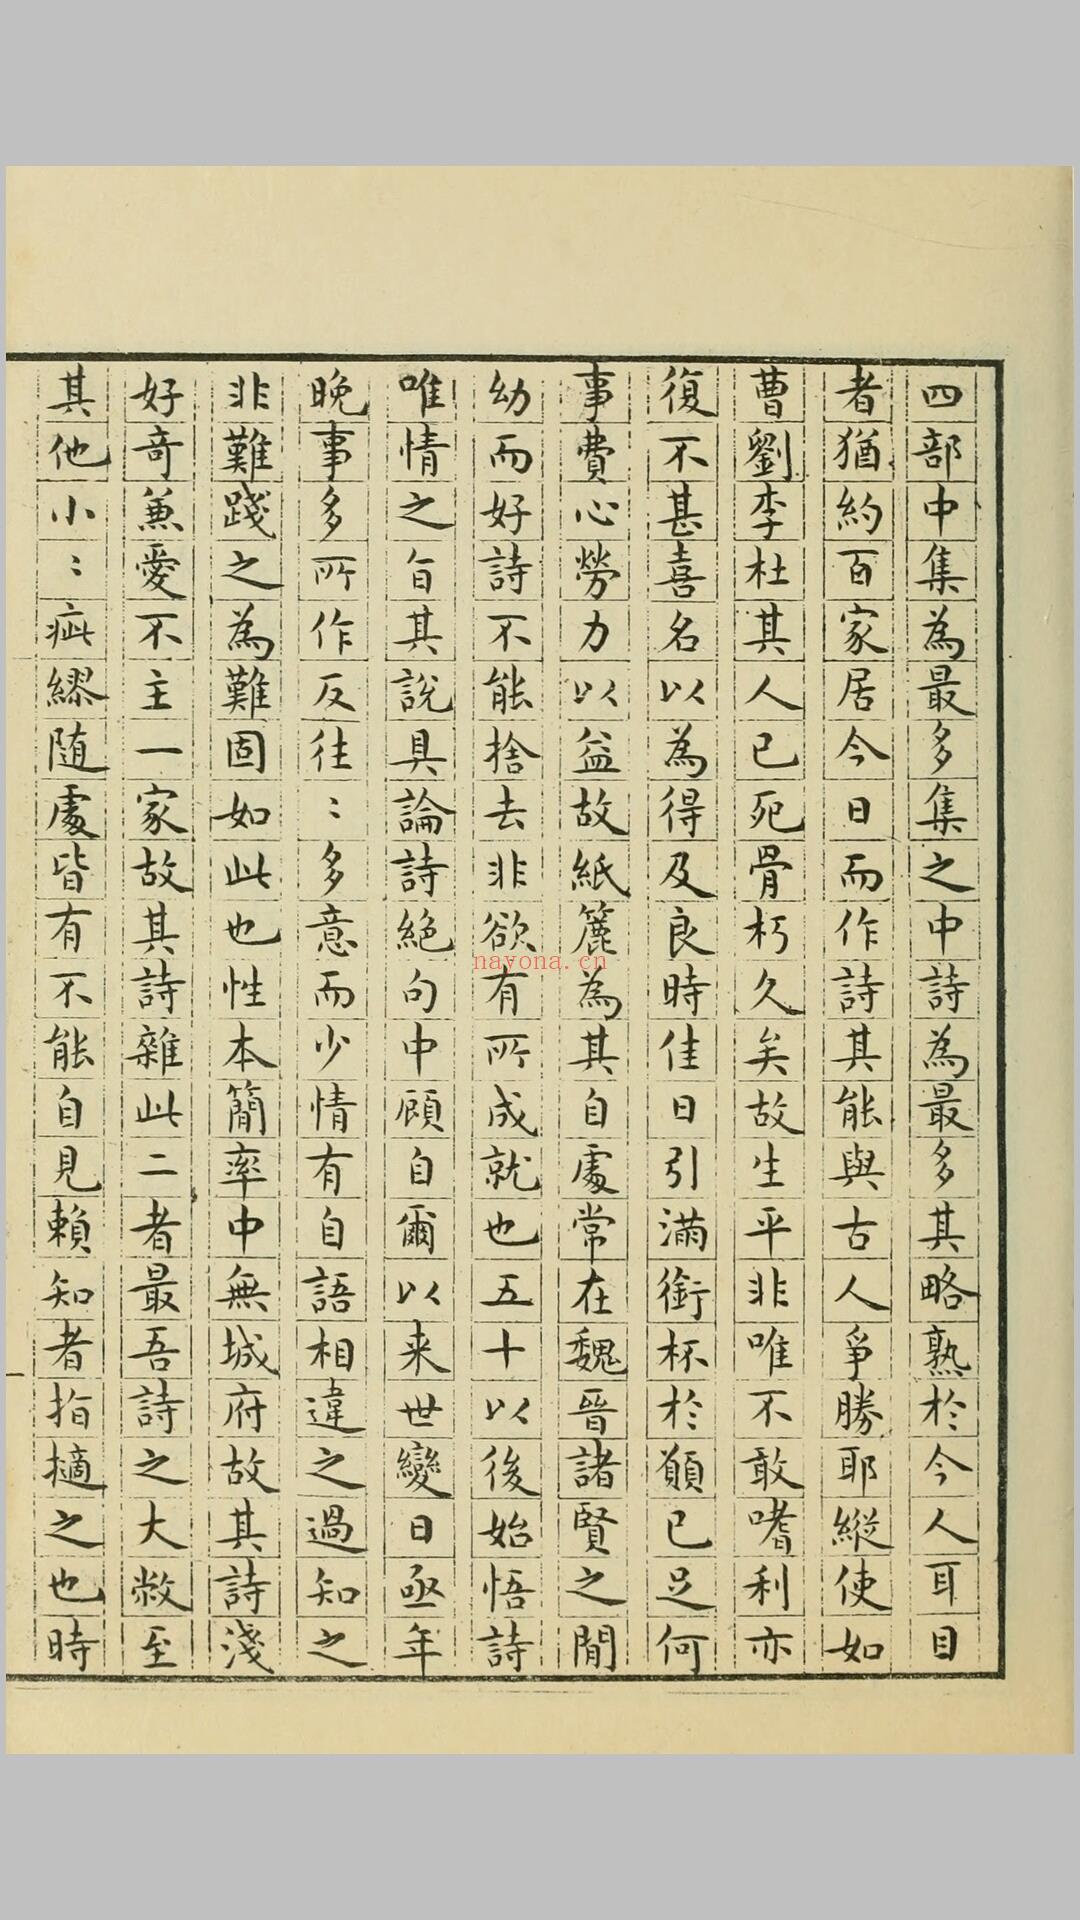 四部中集為最多集之中詩為最多其略熟於今人耳目
者猶約百家居今日而作詩其能與古人爭勝耶縱使如
曹劉李杜其人已死骨朽久矣故生平非唯不敢嗜利亦
復不甚喜名以為得及良時佳日引滿銜杯於願已足何
事費心勞力以益故紙簏為其自處常在魏晉諸賢之閒
幼而好詩不能捨去非欲有所成就也五十以後始悟詩
唯情之旨其說具論詩絕句中顧自爾以来世變日亟年
晚事多所作反往〻多意而少情有自語相違之過知之
非難踐之為難固如此也性本簡率中無城府故其詩淺
好奇兼愛不主一家故其詩雜此二者最吾詩之大敝至
其他小〻疵繆随處皆有不能自見賴知者指擿之也時
nayona.cn